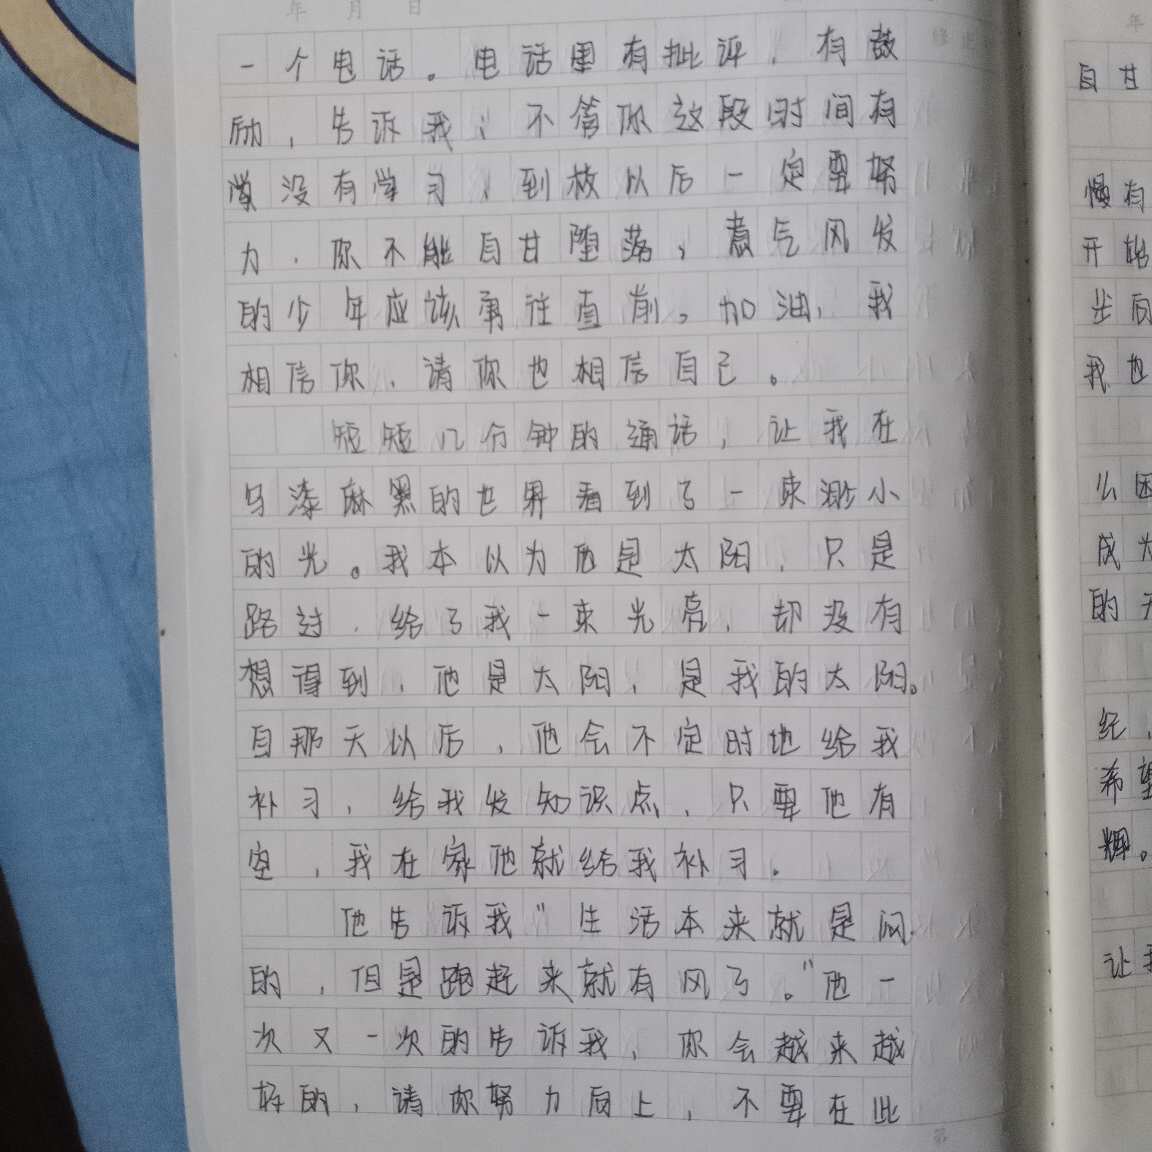 年 月 日
一个电话。电话里有批评，有鼓
励，告诉我，不管你这段时间有
没有学习，到校以后一定要努
力，你不能自甘堕落，意气风发
的少年应该勇往直前。加油，我
相信你，请你也相信自己。
短短几分钟的通话，让我在
乌漆麻黑的世界看到了一束渺小
的光。我本以为他是太阳，只是
路过，给了我一束光亮，却没有
想得到，他是太阳，是我的太阳。
自那天以后，他会不定时地给我
补习，给我发知识点，只要他有
空，我在家他就给我补习。
他告诉我"生活本来就是闷
的，但是跑起来就有风了。"他一
次又一次的告诉我，你会越来越
好的，请你努力向上，不要在此
年
自甘
慢有
开始
步向
我也
么困
成为
的天
纪，
希望
辉。
让我